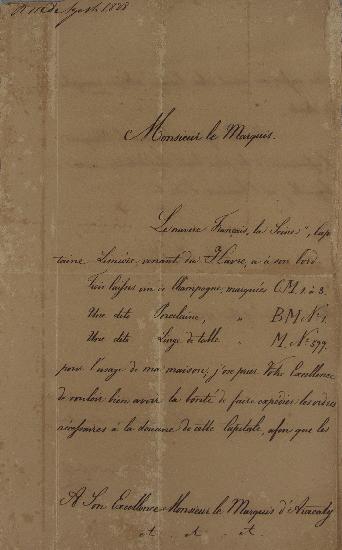 de Agosto 1828
Monsieur le Marquis.
Le navire Français, la Seine", Cap
taine venant du Havre, a à son bord
Trois caisses vin de Champagne, marquées C M. 1 à 3.
Une dite Porcelaine, " B M Nº 1.
Une dite Linge de table " M. Nº 577
pour l'usage de ma maison; j'ose prier Votre Excellence
de vouloir bien avoir la bonté de faire expédier les ordres
nécessaires à la douane de cette Capitale, afin que les
A Son Excellence Monsieur le Marquis d'Aracaty